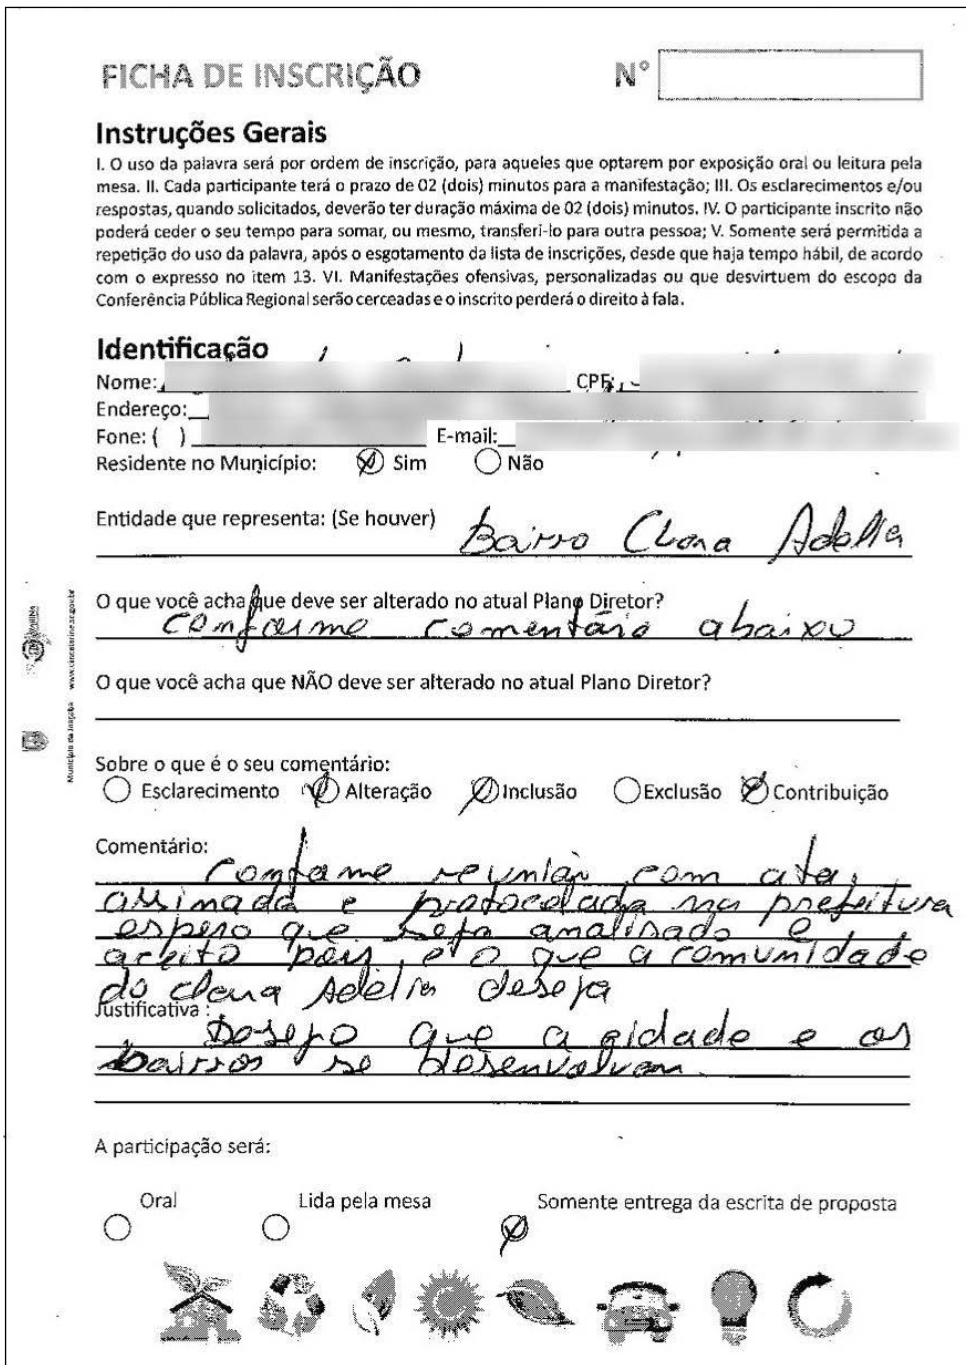 FICHA DE INSCRIÇÃO
N°
Instruções Gerais
I. O uso da palavra será por ordem de inscrição, para aqueles que optarem por exposição oral ou leitura pela
mesa. II. Cada participante terá o prazo de 02 (dois) minutos para a manifestação; III. Os esclarecimentos e/ou
respostas, quando solicitados, deverão ter duração máxima de 02 (dois) minutos. IV. O participante inscrito não
poderá ceder o seu tempo para somar, ou mesmo, transferi-lo para outra pessoa; V. Somente será permitida a
repetição do uso da palavra, após o esgotamento da lista de inscrições, desde que haja tempo hábil, de acordo
com o expresso no item 13. VI. Manifestações ofensivas, personalizadas ou que desvirtuem do escopo da
Conferência Pública Regional serão cerceadas e o inscrito perderá o direito à fala.
Identificação
Nome: CPF:
Endereço:
Fone: ( ) E-mail:
Residente no Município: Sim Não
Entidade que representa: (Se houver)
Bairro Clara Adelia
O que você acha que deve ser alterado no atual Plano Diretor?
conforme comentário abaixo
O que você acha que NÃO deve ser alterado no atual Plano Diretor?
Sobre o que é o seu comentário:
Esclarecimento Alteração Inclusão Exclusão Contribuição
Comentário:
Conforme reunião com ata,
assinada e protocolada na prefeitura
espero que seja analisado e
aceito pois é o que a comunidade
do Clara Adélia deseja
Justificativa :
Desejo que a cidade e os
bairros se desenvolvam.
A participação será:
Oral Lida pela mesa Somente entrega da escrita de proposta
Município de Joaçaba